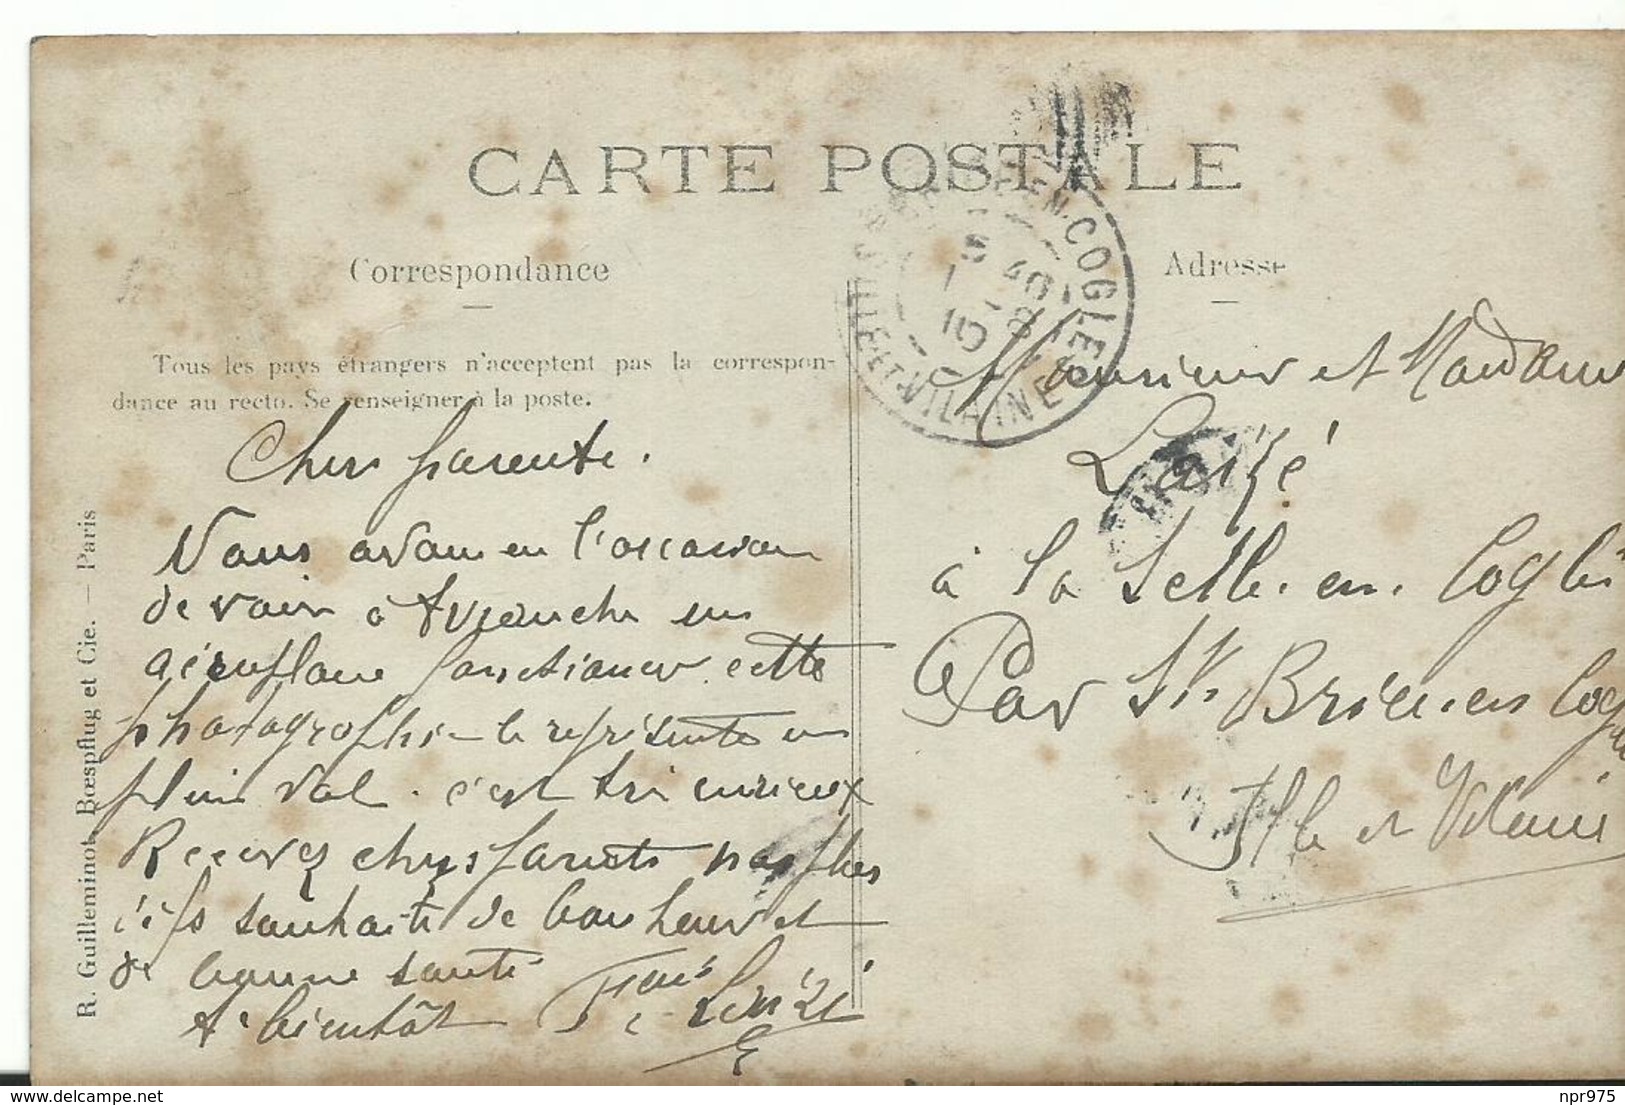 CARTE POSTALE
Correspondance
Adresse
Tous les pays étrangers n'acceptent pas la correspon-
dance au recto. Se renseigner à la poste.
R. Guilleminot, Bœspflug et Cie. — Paris
EN-COGLES
ILLE-ET-VILAINE
Chers parents.
Nous avons eu l'occasion
de voir à Avranche un
aéroplane fonctionner cette
photographie le représente en
plein vol. c'est très curieux
Recevez chers parents nos plus
vifs souhaits de bonheur et
de bonne santé
A bientôt
Monsieur et Madame
Laizé
à la Selle. en. Cogles
Par St Brice. en Cogles
Ille et Vilaine
npr975